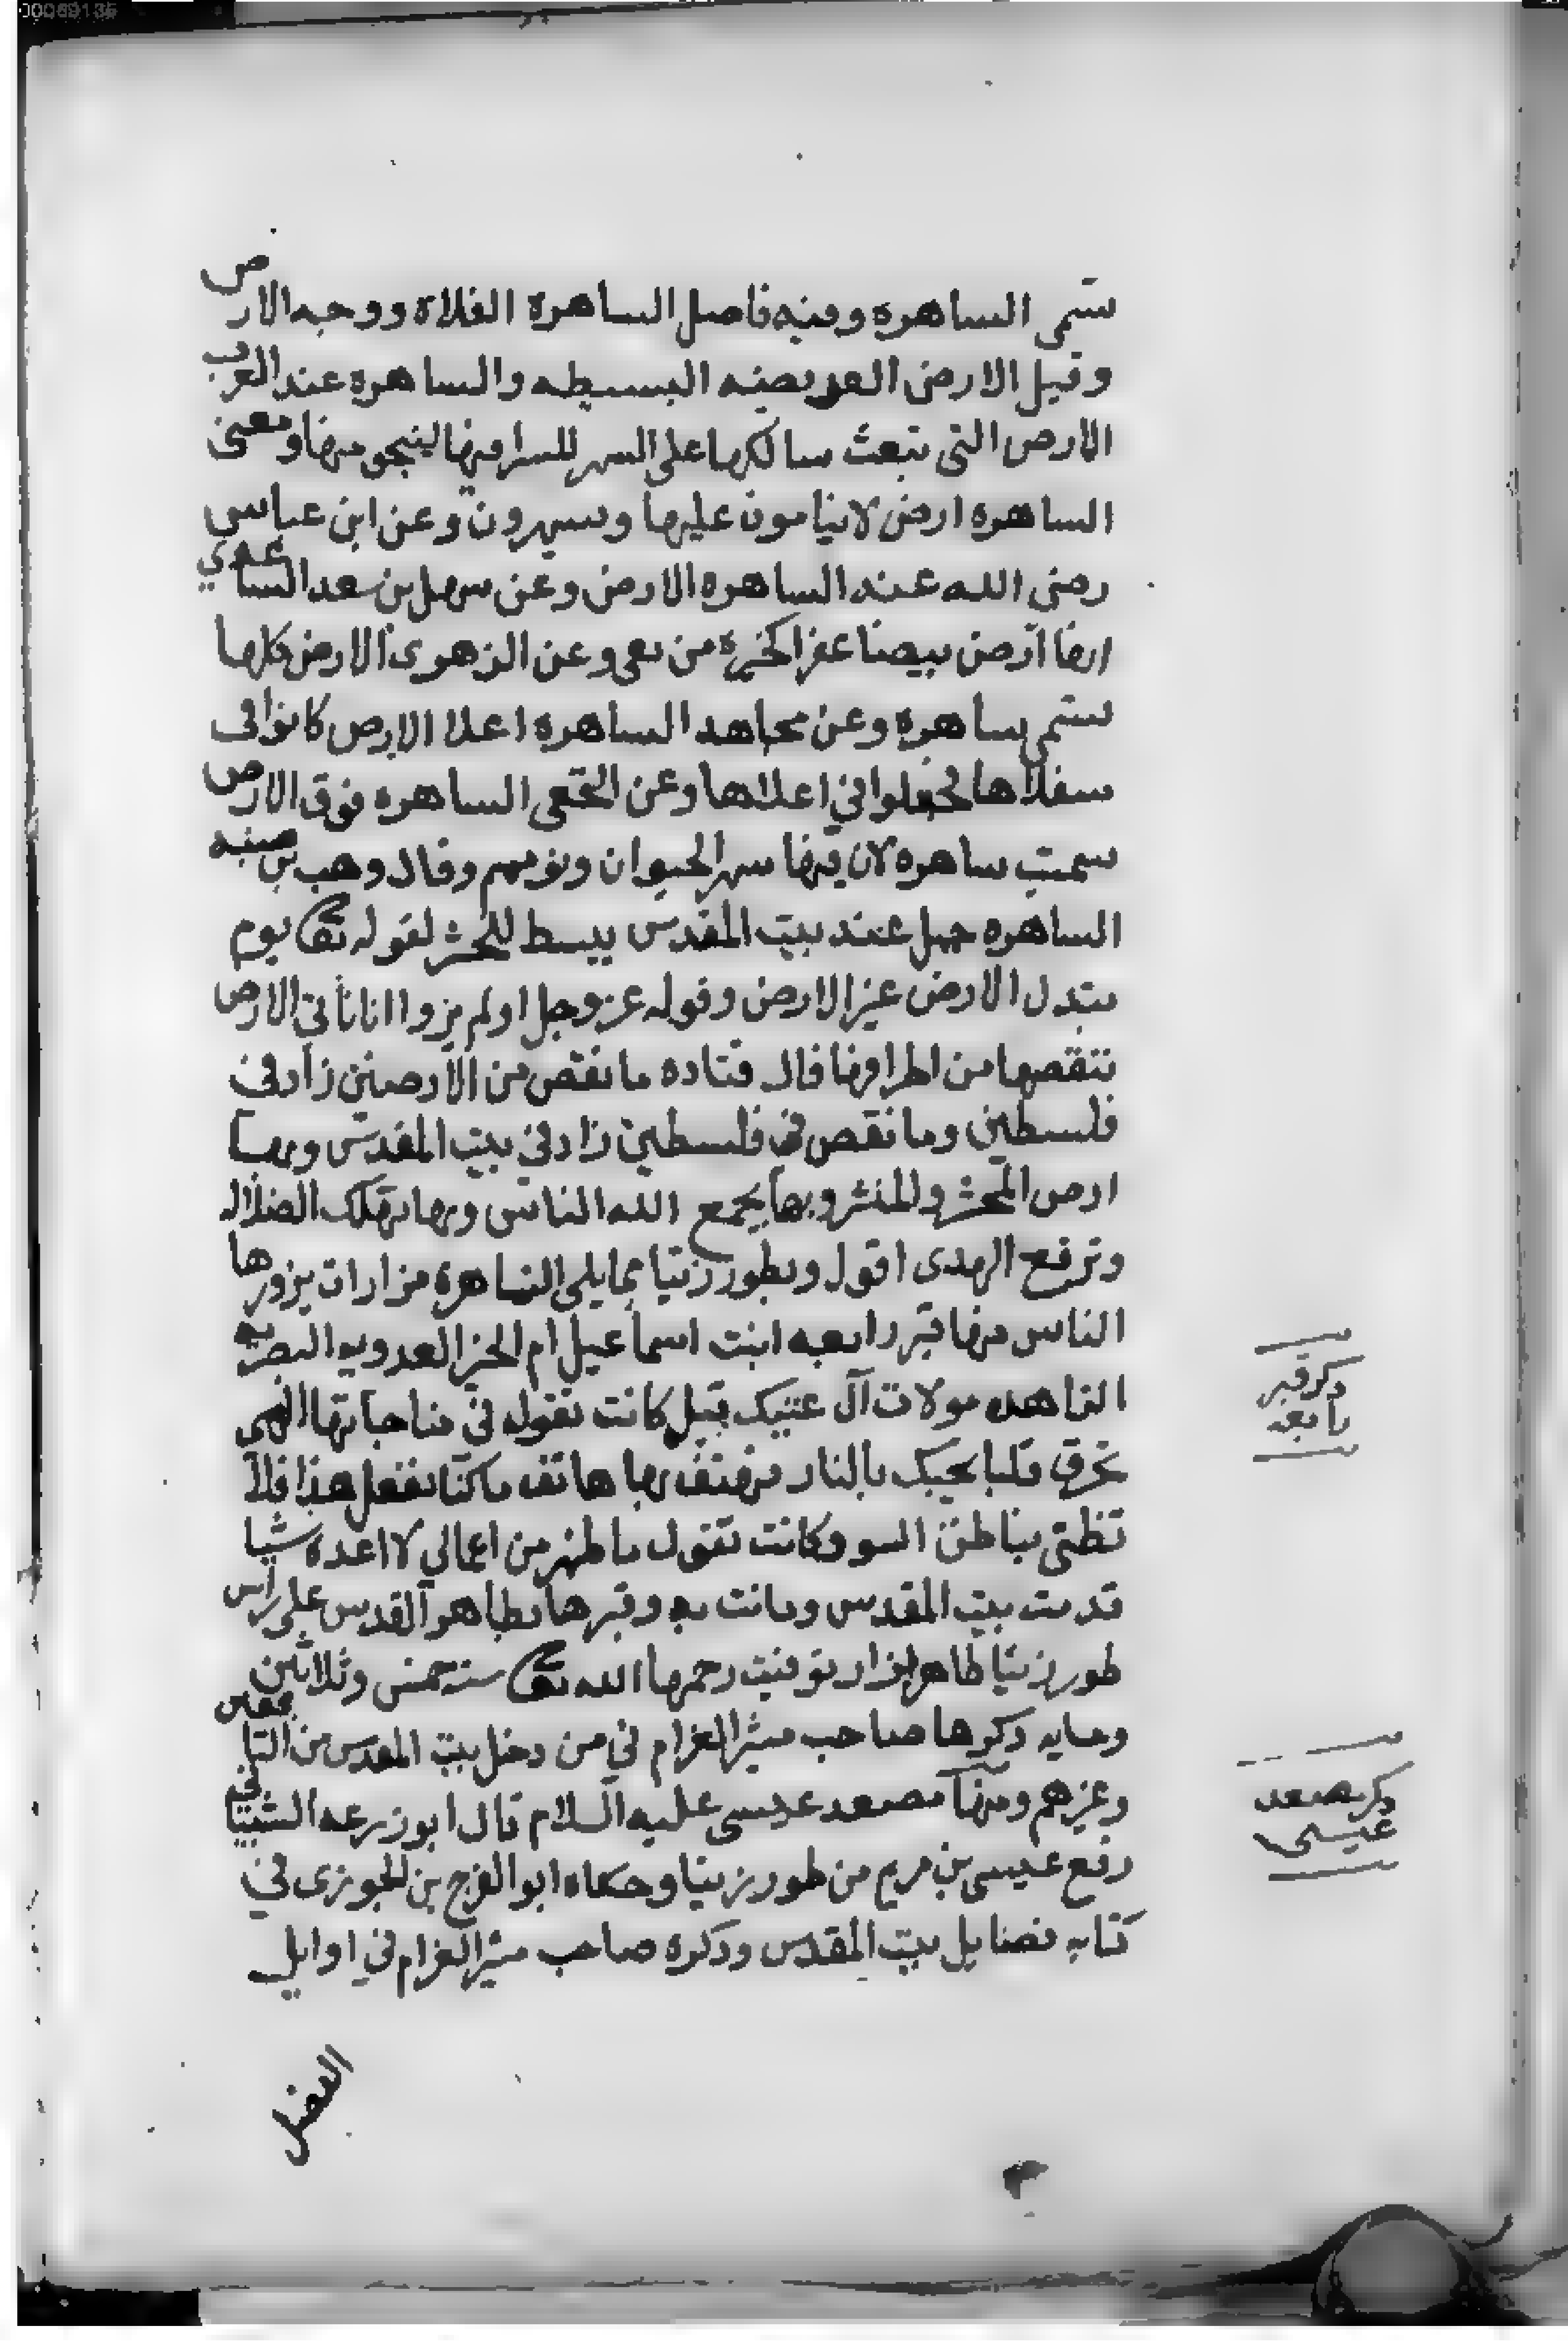 سمى الساهره ومنه فاصل الساهرة الفلاة ووجه الارض
وقيل الارض العريضه البسيطه والساهره عند العرب
الارض التي تبعث سالكها على السهر للسرا فيها لينجو منها ومعنى
الساهره ارض لا ينامون عليها ويسهرون وعن ابن عباس
رضى الله عنه الساهره الارض وعن سهل بن سعد الساعدي
انها ارض بيضا عفرا كالخبزة من نقى وعن الزهرى الارض كلها
تسمى ساهره وعن مجاهد الساهره اعلا الارض كانوا في
سفلاها فجعلوا في اعلاها وعن النخعى الساهره فوق الارض
سميت ساهره لان فيها سهر الحيوان ونومهم وقال وهب بن منبه
الساهره جبل عند بيت المقدس يبسط للمحشر لقوله تعالى يوم
تبدل الارض غير الارض وقوله عز وجل اولم يروا انا ناتي الارض
ننقصها من اطرافها قال قتاده ما نقص من الارضين زاد في
فلسطين وما نقص في فلسطين زاد في بيت المقدس وبها
ارض المحشر والمنشر وبها يجمع الله الناس وبها تهلك الضلاله
وترفع الهدى اقول وبطور زيتا مما يلى الساهره مزارات يزورها
الناس منها قبر رابعه ابنت اسماعيل ام الخير العدويه البصريه
الزاهده مولات آل عتيك قيل كانت تقول في مناجاتها الهى
تحرق قلبا يحبك بالنار فهتف بها هاتف ما كنا نفعل هذا فلا
تظنى بنا ظن السو وكانت تقول ما ظهر من اعمالي لا اعده شيا
قدمت بيت المقدس وماتت به وقبرها بظاهر القدس على راس
طور زيتا ظاهر يزار توفيت رحمها الله تعالى سنة خمس وثلاثين
ومايه ذكرها صاحب مثير الغرام في من دخل بيت المقدس من التابعين
وغيرهم ومنها مصعد عيسى عليه السلام قال ابو زرعه الشيباني
رفع عيسى بن مريم من طور زيتا وحكاه ابو الفرج بن الجوزى في
كتابه فضايل بيت المقدس وذكره صاحب مثير الغرام في اوايل
الفصل
ذكر قبر
رابعه
ذكر مصعد
عيسى